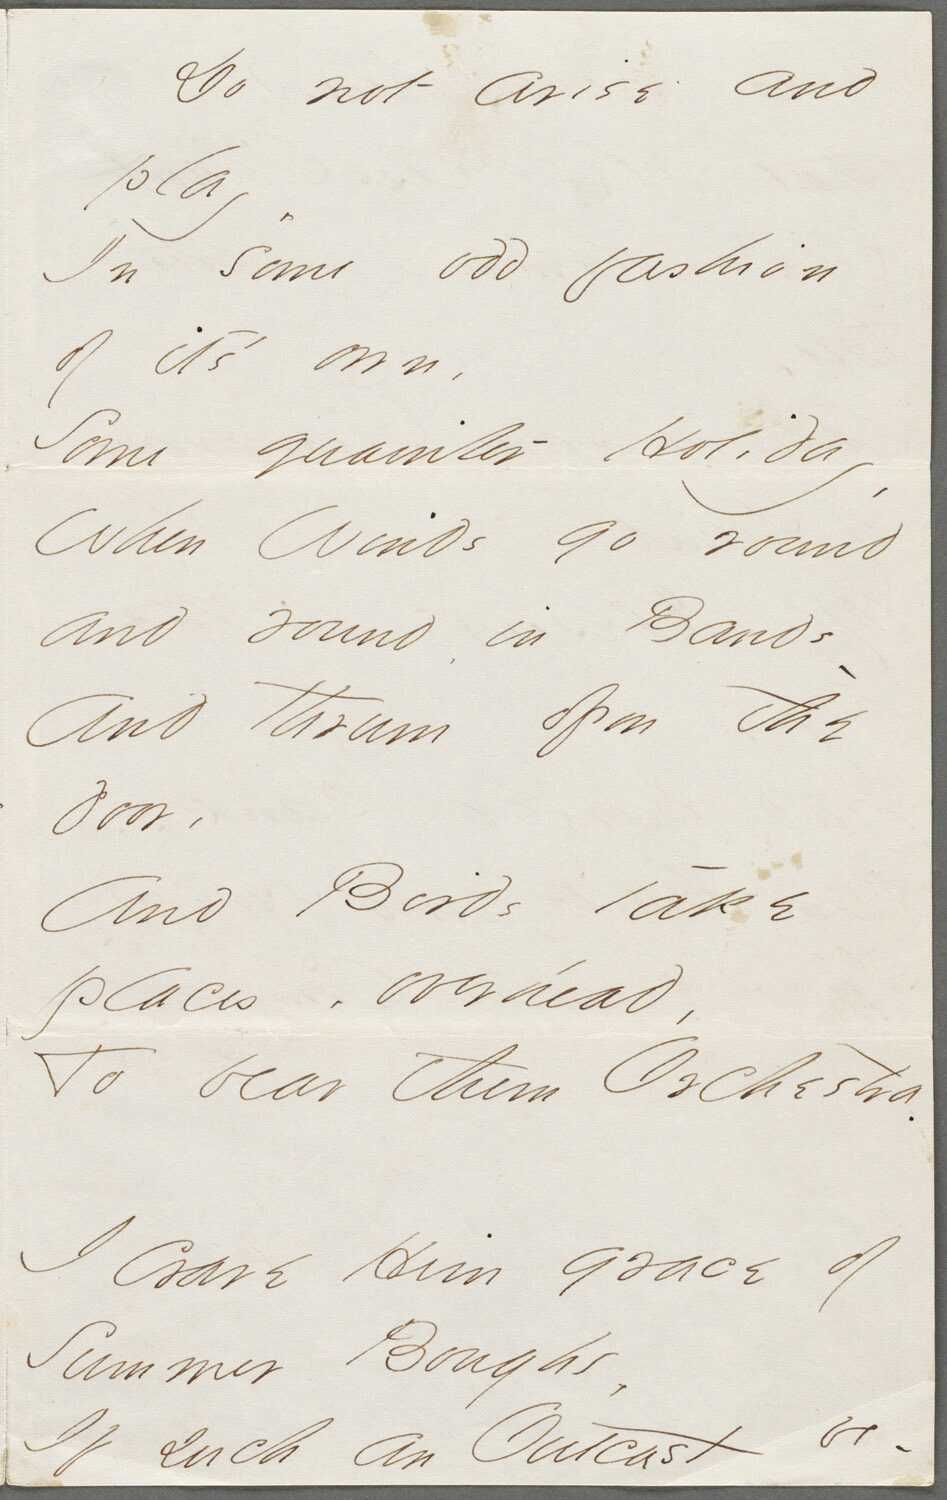 Do not arise and
play,
In some odd fashion
of it's own,
Some quainter Holiday,
When Winds go round
and round, in Bands,
And thrum opon the
door,
And Birds take
places, overhead,
To bear them Orchestra.
I crave Him grace of
Summer Boughs,
If such an Outcast be -